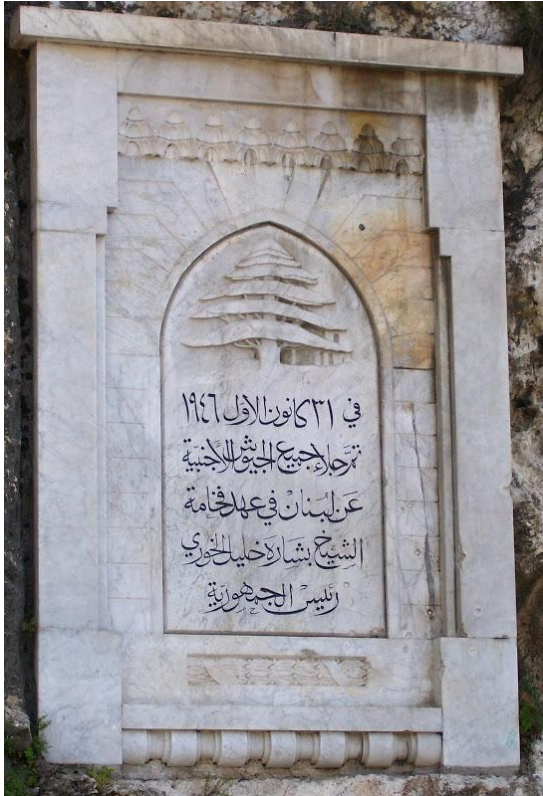 في ٣١ كانون الاوّل ١٩٤٦
تمّ جلاء جميع الجيوش الأجنبيّة
عَن لبنَان في عهد فخامة
الشيخ بشاره خليل الخوري
رئيس الجمهوريّة